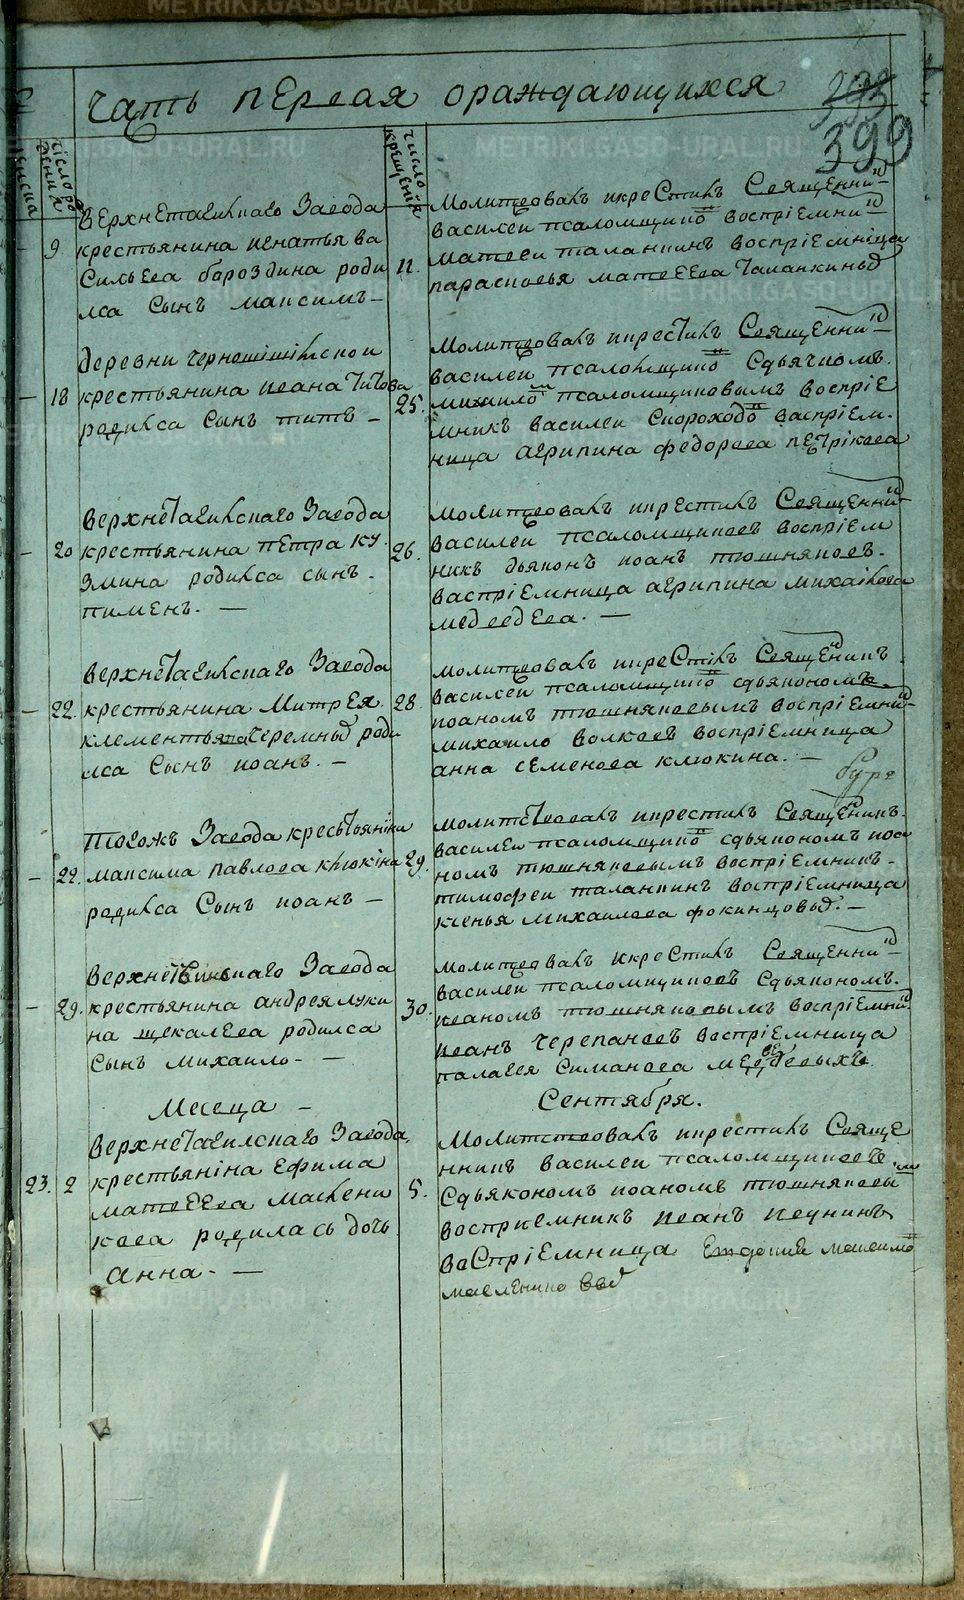 METRIKI.GASO-URAL.RU
Чать первая ораждающихся
399
число рождения
число крещения
Верхнетагилскаго Завода
9 крестьянина игнатья ва
сильева бороздина роди
лса сынъ максимъ
11. Молитвовалъ икрестилъ Священни
василеи псаломщико воспрiемни
матвеи таланкинъ воспрiемница
парасковья матвеева
деревни
18 крестьянина ивана титова
родилса сынъ титъ
25. Молитвовалъ икрестилъ Священни
василеи псаломщико здьячкомъ
михаило псаломщиковымъ воспрiе
мникъ василеи скороходо васпрiем
ница агрипина федорова петрiкова
Верхнетагилскаго Завода
20 крестьянина петра ку
змина родилса сынъ
пименъ.
26. Молитвовалъ икрестилъ Священни
василеи псаломщиковъ воспрiем
никъ дьяконъ иоанъ тюшняковъ.
васпрiемница агрипина михаiлова
медведева.
Верхнетагилскаго Завода
22. крестьянина Митрея
клементьева черемных роди
лса сынъ иоанъ.
28. Молитвовалъ икрестiлъ Священикъ
василеи псаломщико здьякономъ
иоаномъ тюшняковымъ воспрiемни
михаило волковъ воспрiемница
анна семенова клюкина.
тогожъ Завода крестьянiна
22. максима павлова клюкiна
родилса сынъ иоанъ
29. Молитвовалъ икрестилъ Священикъ
василеи псаломщико здьякономъ иоа
номъ тюшняковымъ воспрiемникъ
тимофеи таланкинъ воспрiемница
ксенья михаилова
Верхнетагилскаго Завода
29. крестьянина андрея луки
на щекалева родилса
сынъ михаило
30. Молитвовалъ икрестилъ Священни
василеи псаломщиковъ здьякономъ
иваномъ тюшняковымъ воспрiемни
иванъ черепановъ воспрiемница
палагея симанова медведевыхъ
Месеца Сентября.
Верхнетагилскаго Завода
23. 2 крестьянiна ефима
матвеева маслени
кова родилась дочь
анна.
5. Молитствовалъ икрестилъ Свяще
нникъ василеи псаломщиковъ
здьякономъ иоаномъ тюшняковы
восприемникъ иванъ
васпрiемница максимо
METRIKI.GASO-URAL.RU